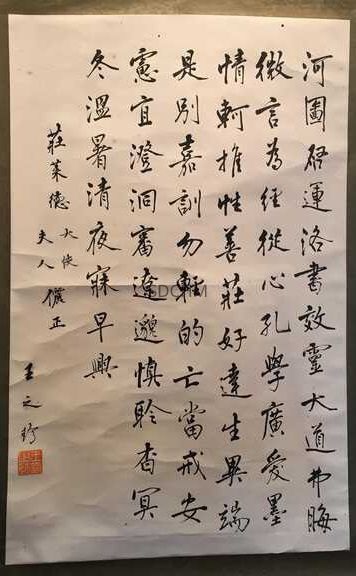 河圖啓運洛書效靈大道弗晦
微言為經從心孔學廣愛墨
情軻推性善莊好達生異端
是別嘉訓勿輕的亡當戒安
憲宜澄洞審遼邈慎聆杳冥
冬溫暑清夜寐早興
莊萊德大使夫人儷正
王之